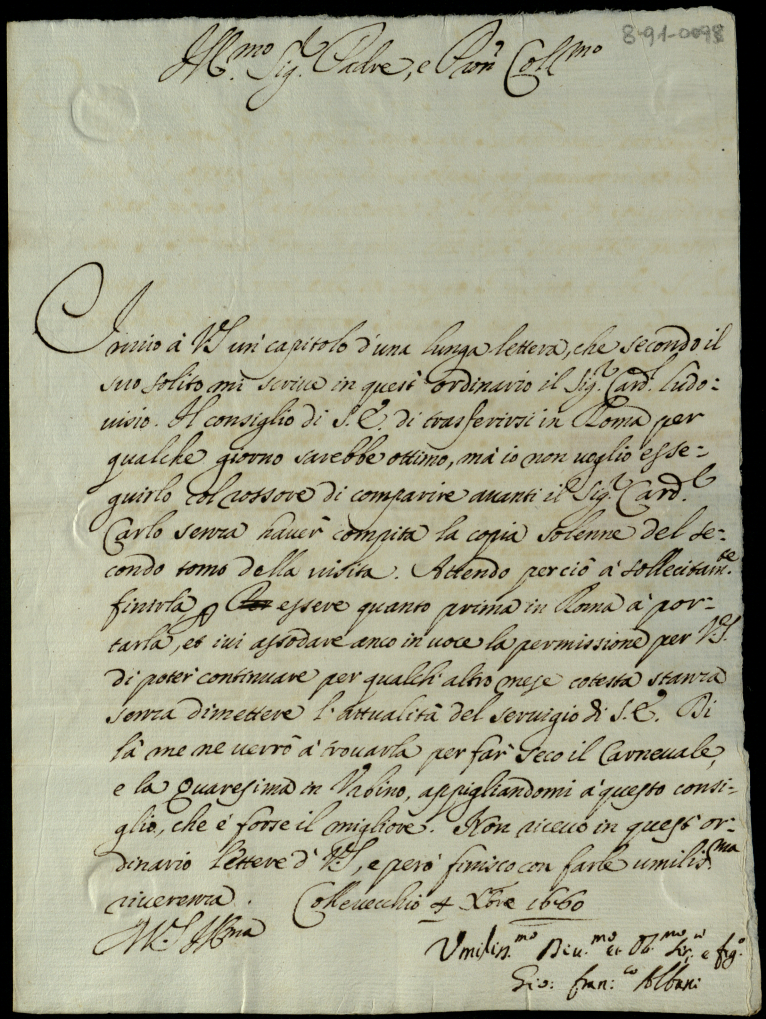 8-91-0098
Ill.mo Sig.r Padre, e Pron Coll.mo
Inuio à VS un' capitolo d'una lunga lettera, che secondo il
suo solito mi scriue in quest' ordinario il Sig.r Card.l Ludo=
uisio. Il consiglio di S.E. di trasferirsi in Roma per
qualche giorno sarebbe ottimo, mà io non uoglio esse=
guirlo col rossore di comparire auanti il Sig.r Card.l
Carlo senza hauer' compita la copia solenne del se=
condo tomo della uisita. Attendo perciò à sollecitam.te
finirla, p essere quanto prima in Roma à por=
tarla, et iui assodare anco in uoce la permissione per VS.
di poter' continuare per qualch' altro mese cotesta stanza
senza dimettere l'attualità del seruigio di S.E. Di
là me ne uerrò à trouarla per far' seco il Carneuale,
e la Quaresima in Vrbino, appigliandomi à questo consi=
glio, che è forse il migliore. Non riceuo in quest' or=
dinario lettere di VS, e però finisco con farle umiliss.ma
riuerenza. Colleuecchio 4 Xbre 1660
VS Ill.ma
Vmiliss.mo Diu.mo et Ob.mo Ser.e e fig.o
Gio: Fran.co Albani